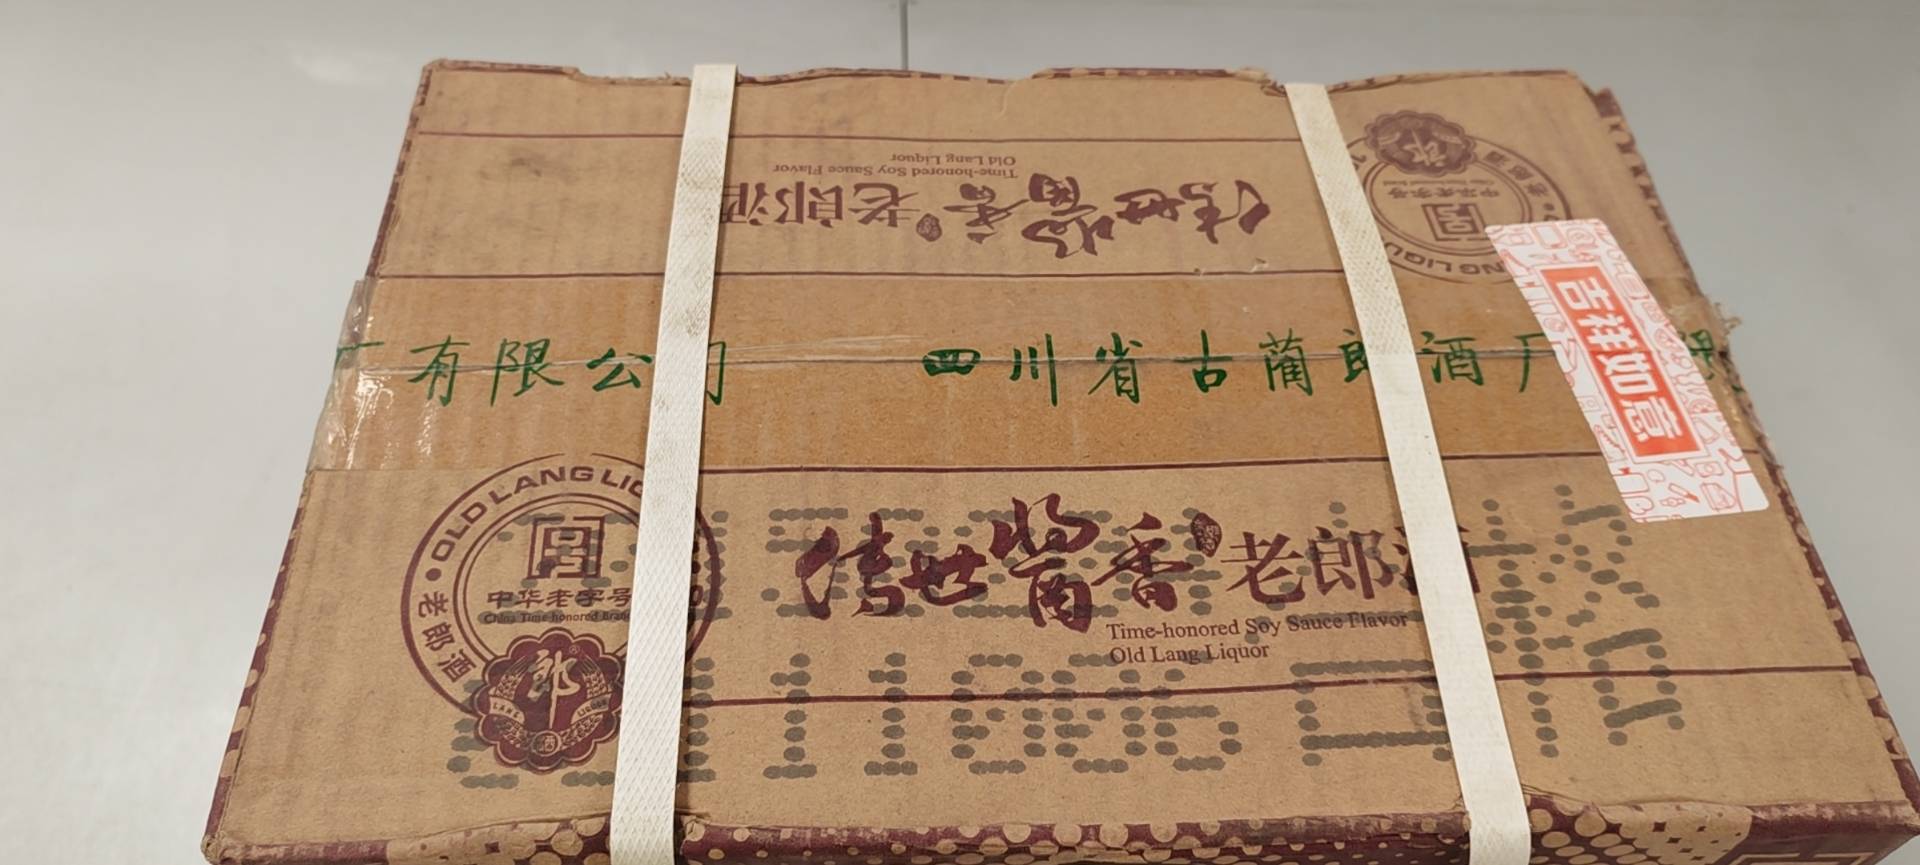 Old Lang Liquor
Time-honored Soy Sauce Flavor
传世酱香老郎酒
郎
中华老字号
吉祥如意
厂有限公司 四川省古蔺郎酒厂 限
OLD LANG LIQ
中华老字号
China Time-honored Brand
老郎酒
郎
LANG LIQUOR
酒
传世酱香老郎酒
Time-honored Soy Sauce Flavor
Old Lang Liquor